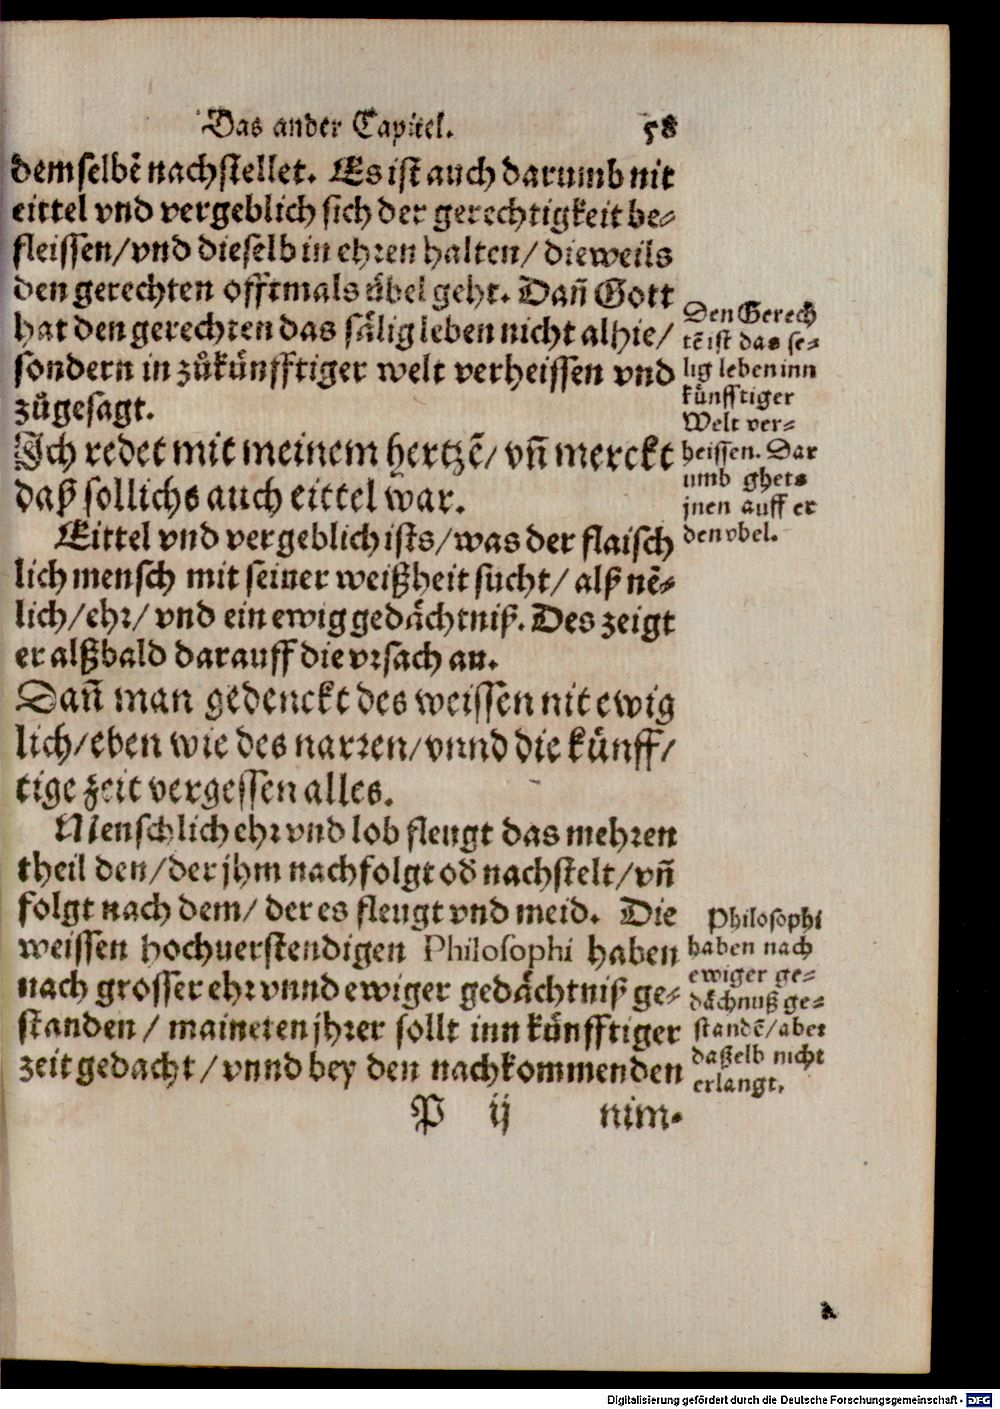 Das ander Capitel. 58
demselbẽ nachstellet. Es ist auch darumb nit
eittel vnd vergeblich sich der gerechtigkeit be⸗
fleissen/vnd dieselb in ehren halten/ dieweils
den gerechten offtmals übel geht. Dañ Gott
hat den gerechten das sälig leben nicht alhie/
sondern in zůkünfftiger welt verheissen vnd
zůgesagt.
Den Gerech
tẽ ist das se⸗
lig leben inn
künfftiger
Welt ver⸗
heissen. Dar
umb ghets
jnen auff er
den vbel.
Ich redet mit meinem hertzẽ/ vñ merckt
daß sollichs auch eittel war.
Eittel vnd vergeblich ists/was der flaisch
lich mensch mit seiner weißheit sucht/ alß nẽ⸗
lich/ehr/ vnd ein ewig gedächtniß. Des zeigt
er alßbald darauff die vrsach an.
Dañ man gedenckt des weissen nit ewig
lich/eben wie des narren/vnnd die künff/
tige zeit vergessen alles.
Menschlich ehr vnd lob fleugt das mehren
theil den/der jhm nachfolgt od̃ nachstelt/vñ
folgt nach dem/ der es fleugt vnd meid. Die
weissen hochuerstendigen Philosophi haben
nach grosser ehr vnnd ewiger gedächtniß ge⸗
standen / maineten jhrer sollt inn künfftiger
zeit gedacht/vnnd bey den nachkommenden
Philosophi
haben nach
ewiger ge⸗
dächnuß ge⸗
standẽ/aber
daßelb nicht
erlangt.
P ij nim⸗
Digitalisierung gefördert durch die Deutsche Forschungsgemeinschaft - DFG